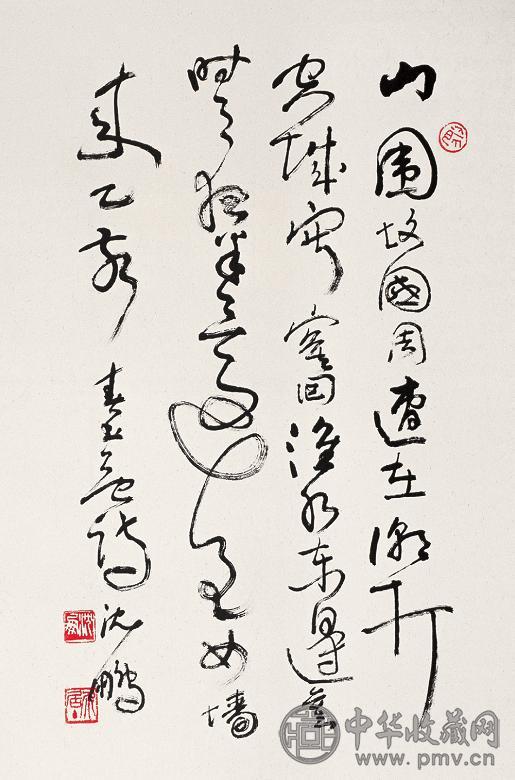 山围故國周遭在潮打
空城寂寞回淮水东邊舊
时月夜深还過女墙
来乙亥春诗沈鹏
中华收藏网
www.pmv.cn